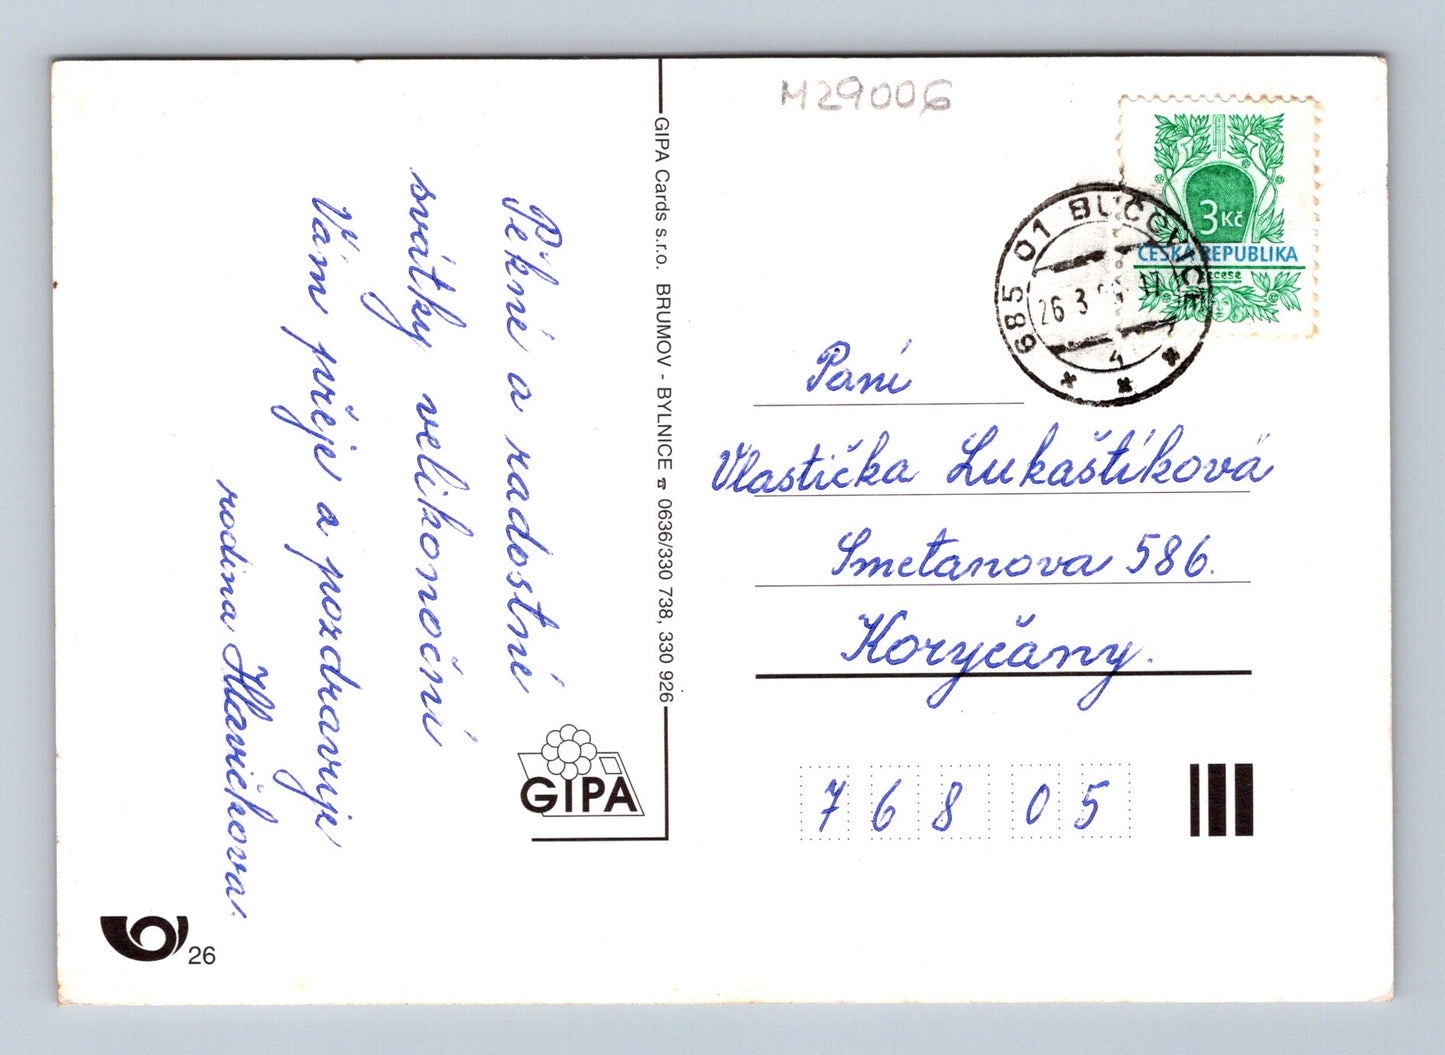 Pěkné a radostné
svátky velikonoční
Vám přeje a pozdravuje
rodina Hlavičkova.
GIPA Cards s.r.o. BRUMOV - BYLNICE ☎ 0636/330 738, 330 926
GIPA
26
M29006
3 Kč
ČESKÁ REPUBLIKA
685 01 BUČOVICE
26.3. 17
4
Paní
Vlastička Lukaštíková
Smetanova 586.
Koryčany.
768 05